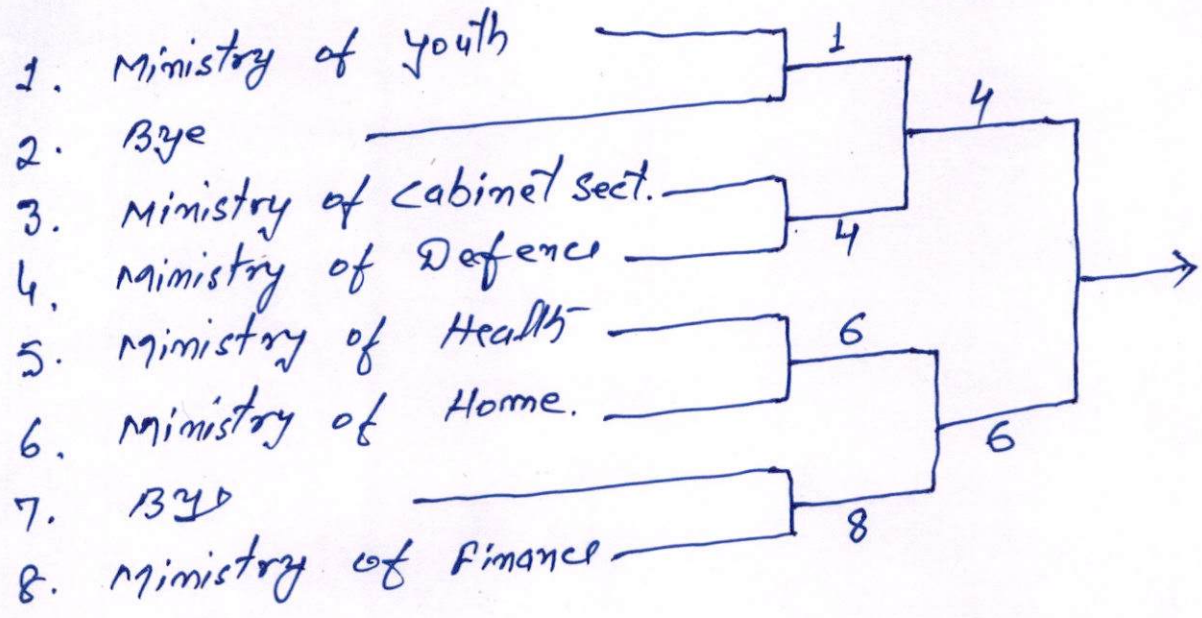 1. Ministry of Youth
2. Bye
3. Ministry of Cabinet Sect.
4. Ministry of Defence
5. Ministry of Health
6. Ministry of Home.
7. Bye
8. Ministry of Finance
1
4
6
8
4
6